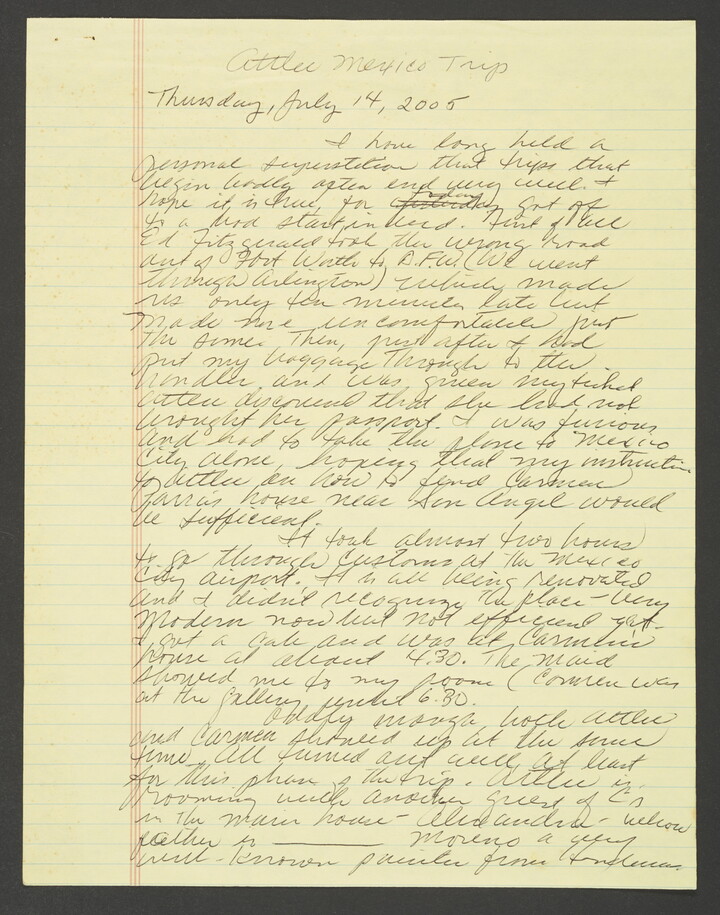 Attlee Mexico Trip
Thursday, July 14, 2005
I have long held a
personal superstition that trips that
begin badly often end very well. I
hope it is true, for got off
to a bad start indeed. First of all
Ed Fitzgerald took the wrong road
out of Fort Worth to D.F.W. (We went
through Arlington) which made
us only ten minutes late but
made me uncomfortable just
the same. Then, just after I had
put my baggage through to the
handler and was given my ticket
Attlee discovered that she had not
brought her passport. I was furious
and had to take the plane to Mexico
City alone, hoping that my instruction
to Attlee on how to find Carmen
Parra's house near San Angel would
be sufficient.
It took almost two hours
to go through customs at the Mexico
City airport. It is all being renovated
and I didn't recognize the place - very
modern now but not efficient yet.
I got a cab and was at Carmen's
house at about 4:30. The maid
showed me to my room (Carmen was
at the gallery until 6:30.
Oddly enough, both Attlee
and Carmen showed up at the same
time. All turned out well, at least
for this phase of the trip. Attlee is
rooming with another guest of C's
in the main house - Alexandra - whose
father is ______ Moreno a very
well-known painter from